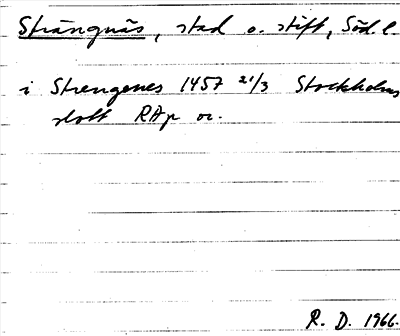 Strängnäs, stad o. stift, Söd.l.
i Strengenes 1457 21/3 Stockholms
slott RAp or.
R. D. 1966.